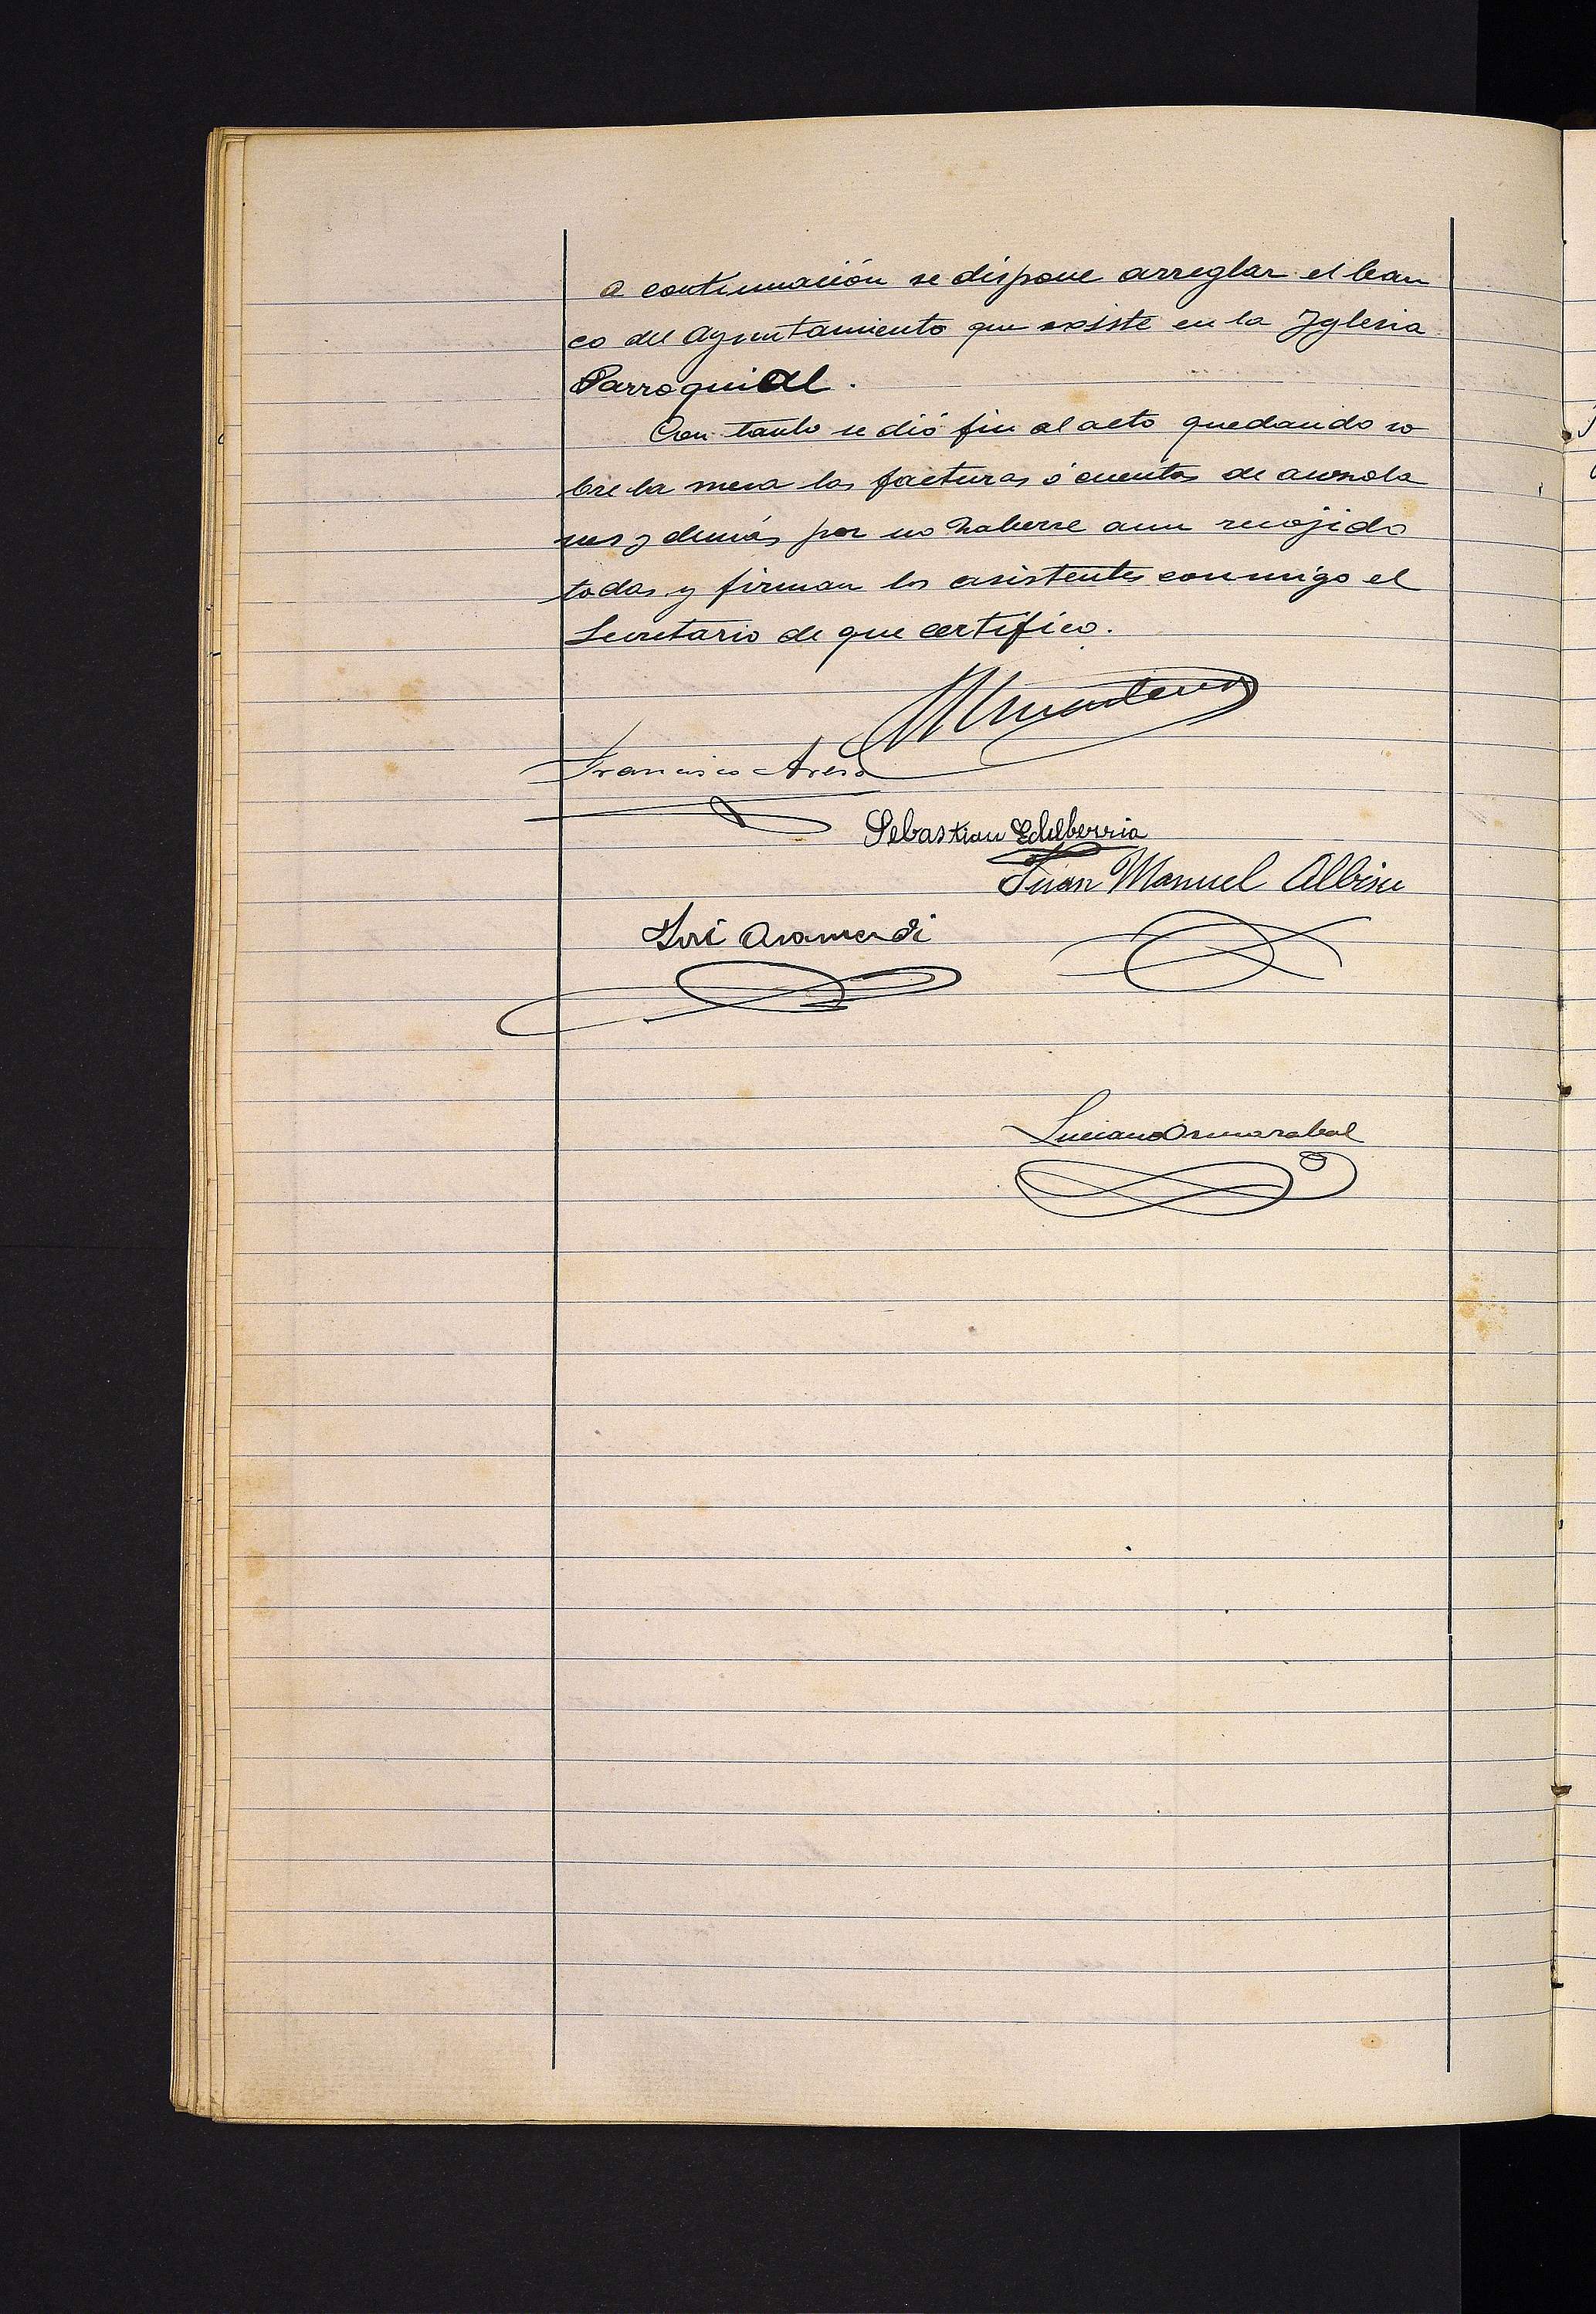 A continuación se dispone arreglar el ban
co del Ayuntamiento que existe en la Iglesia
Parroquial.
Con tanto se dió fin al acto quedando so
bre la mesa las facturas ó cuentas de
y demás por no haberse aun recojido
todas y firman los asistentes conmigo el
Secretario de que certifico.
Francisco Areso
Sebastian Echeberria
Juan Manuel Albisu
José Aramendi
Luciano Ormazabal